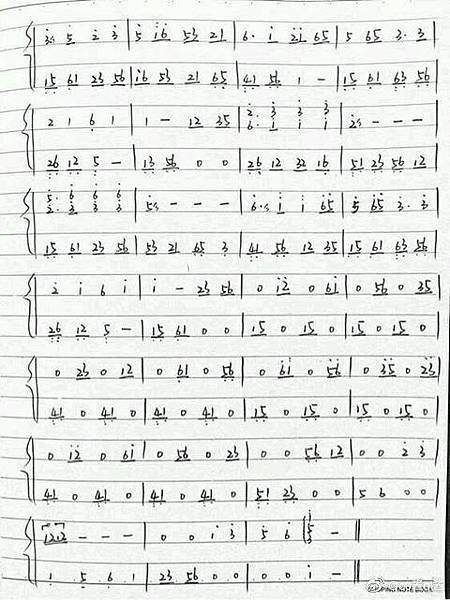 3. 5 2 3 | 5 i6 53 21 | 6. i 2i 65 | 5 65 3. 3
15 61 23 56 | i6 53 21 65 | 41 56 1 - | 15 61 63 56
2 1 6 1 | 1 - 12 35 | 2. 3 3 3 | 2 - - -
6. i i i
26 12 5 - | 13 56 0 0 | 26 12 32 16 | 51 23 56 12
5. 6 6 6 | 5 - - - | 6. i i 65 | 5 65 3. 3
2. 3 3 3
15 61 23 56 | 53 21 65 3 | 41 56 12 35 | 15 61 63 56
2 i 6 i | i - 23 56 | 0 i2 0 6i | 0 56 0 35
26 12 5 - | 15 61 0 0 | 15 0 15 0 | 15 0 15 0
0 23 0 12 | 0 61 0 56 | 0 6i 0 56 | 0 35 0 23
41 0 41 0 | 41 0 41 0 | 15 0 15 0 | 15 0 15 0
0 i2 0 6i | 0 56 0 23 | 0 0 56 12 | 0 0 2 3
41 0 41 0 | 41 0 41 0 | 51 23 0 0 | 5 6 0 0
1212 - - - | 0 0 i 3 | 5 6 i53 - ‖
1 5 6 1 | 23 56 0 0 | 0 0 i - ‖
NOTE BOOK